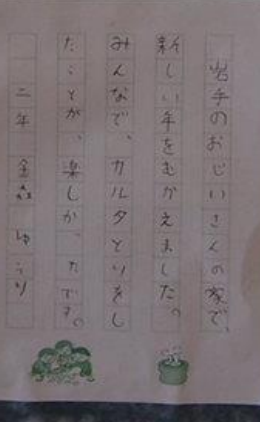 岩手のおじいさんの家で、
新しい年をむかえました。
みんなで、カルタとりをし
たことが、楽しかったです。
二年 金森 ゆうり